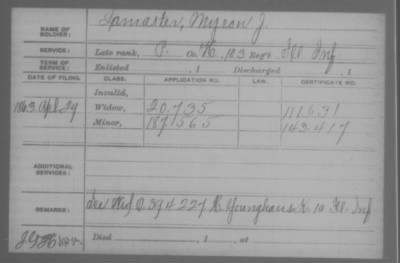 NAME OF SOLDIER: Lamaster, Myron J.
SERVICE: Late rank, P. Co. K, 103 Reg't Ill. Inf
TERM OF SERVICE: Enlisted , 1 Discharged , 1
DATE OF FILING. CLASS. APPLICATION NO. LAW. CERTIFICATE NO.
Invalid,
1863 Apl. 29 Widow, 20.735 111.631
Minor, 187.565 143.417
ADDITIONAL SERVICES:
REMARKS: See Wid. O. 394227 K. 10 Ill. Inf
Died , 1 , at